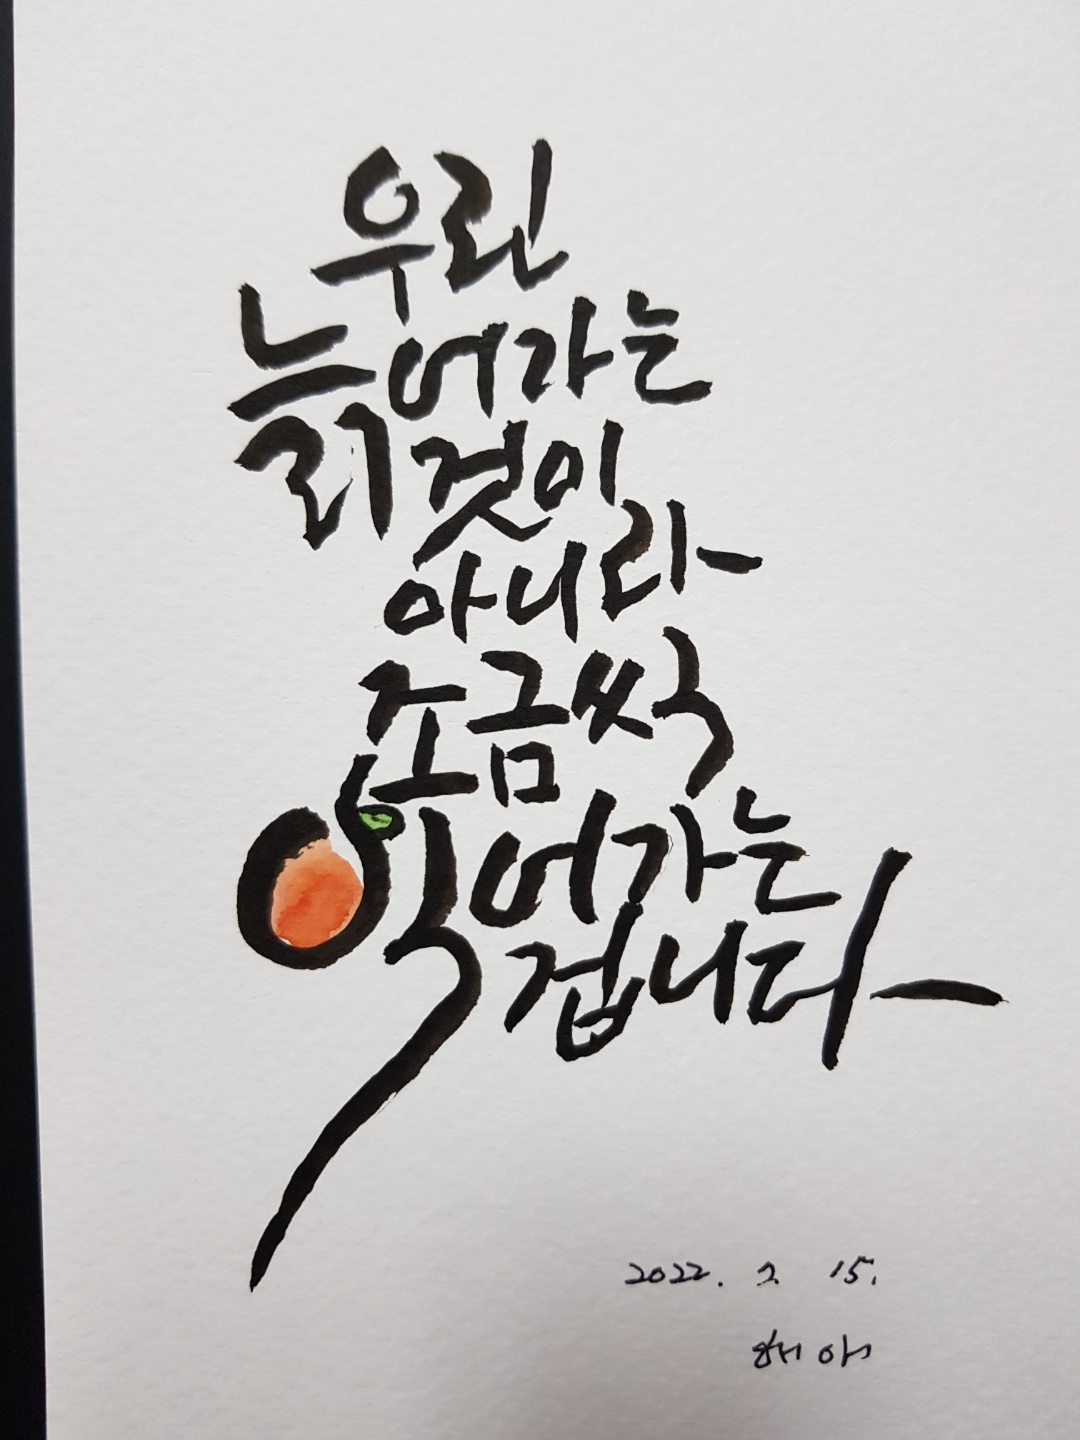 우린
늙어가는
것이
아니라
조금씩
익어가는
겁니다
2022. 2. 15.